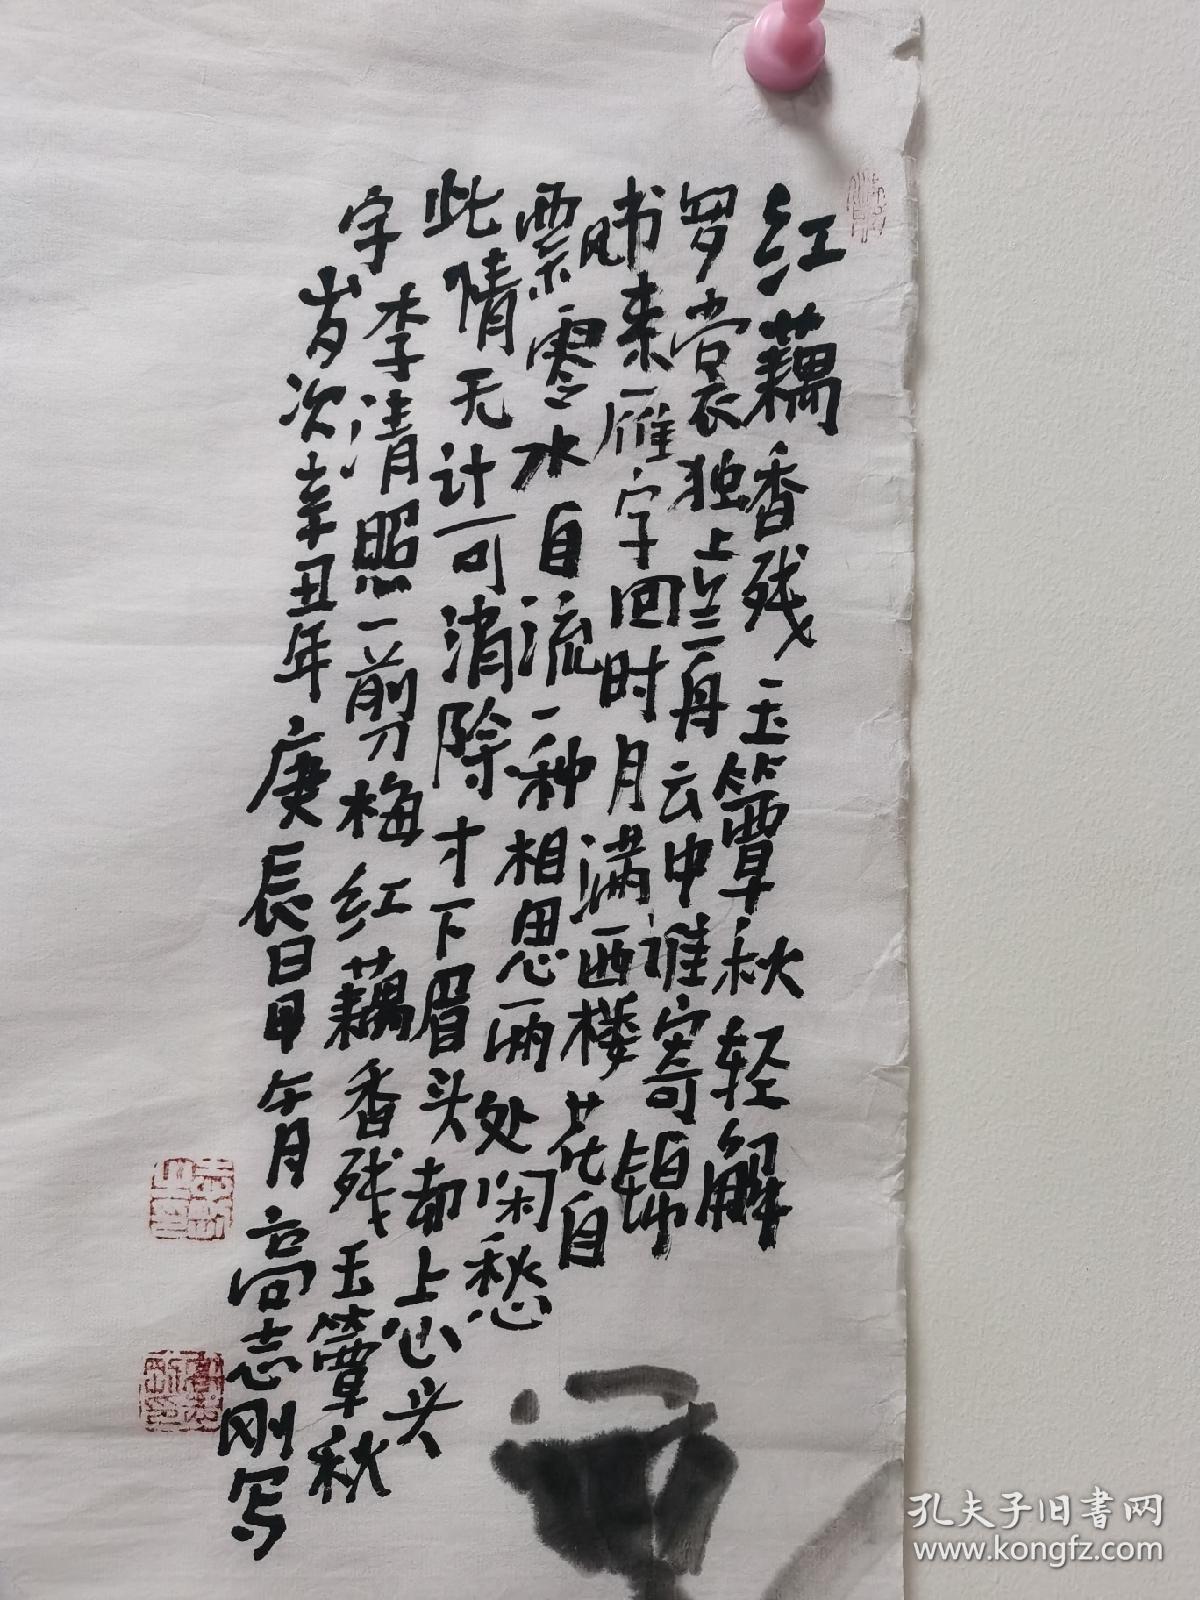 红藕香残玉簟秋轻解
罗裳独上兰舟云中谁寄锦
书来雁字回时月满西楼花自
飘零水自流一种相思两处闲愁
此情无计可消除才下眉头却上心头
字李清照一剪梅红藕香残玉簟秋
岁次辛丑年庚辰日甲午月高志刚写
孔夫子旧书网
www.kongfz.com